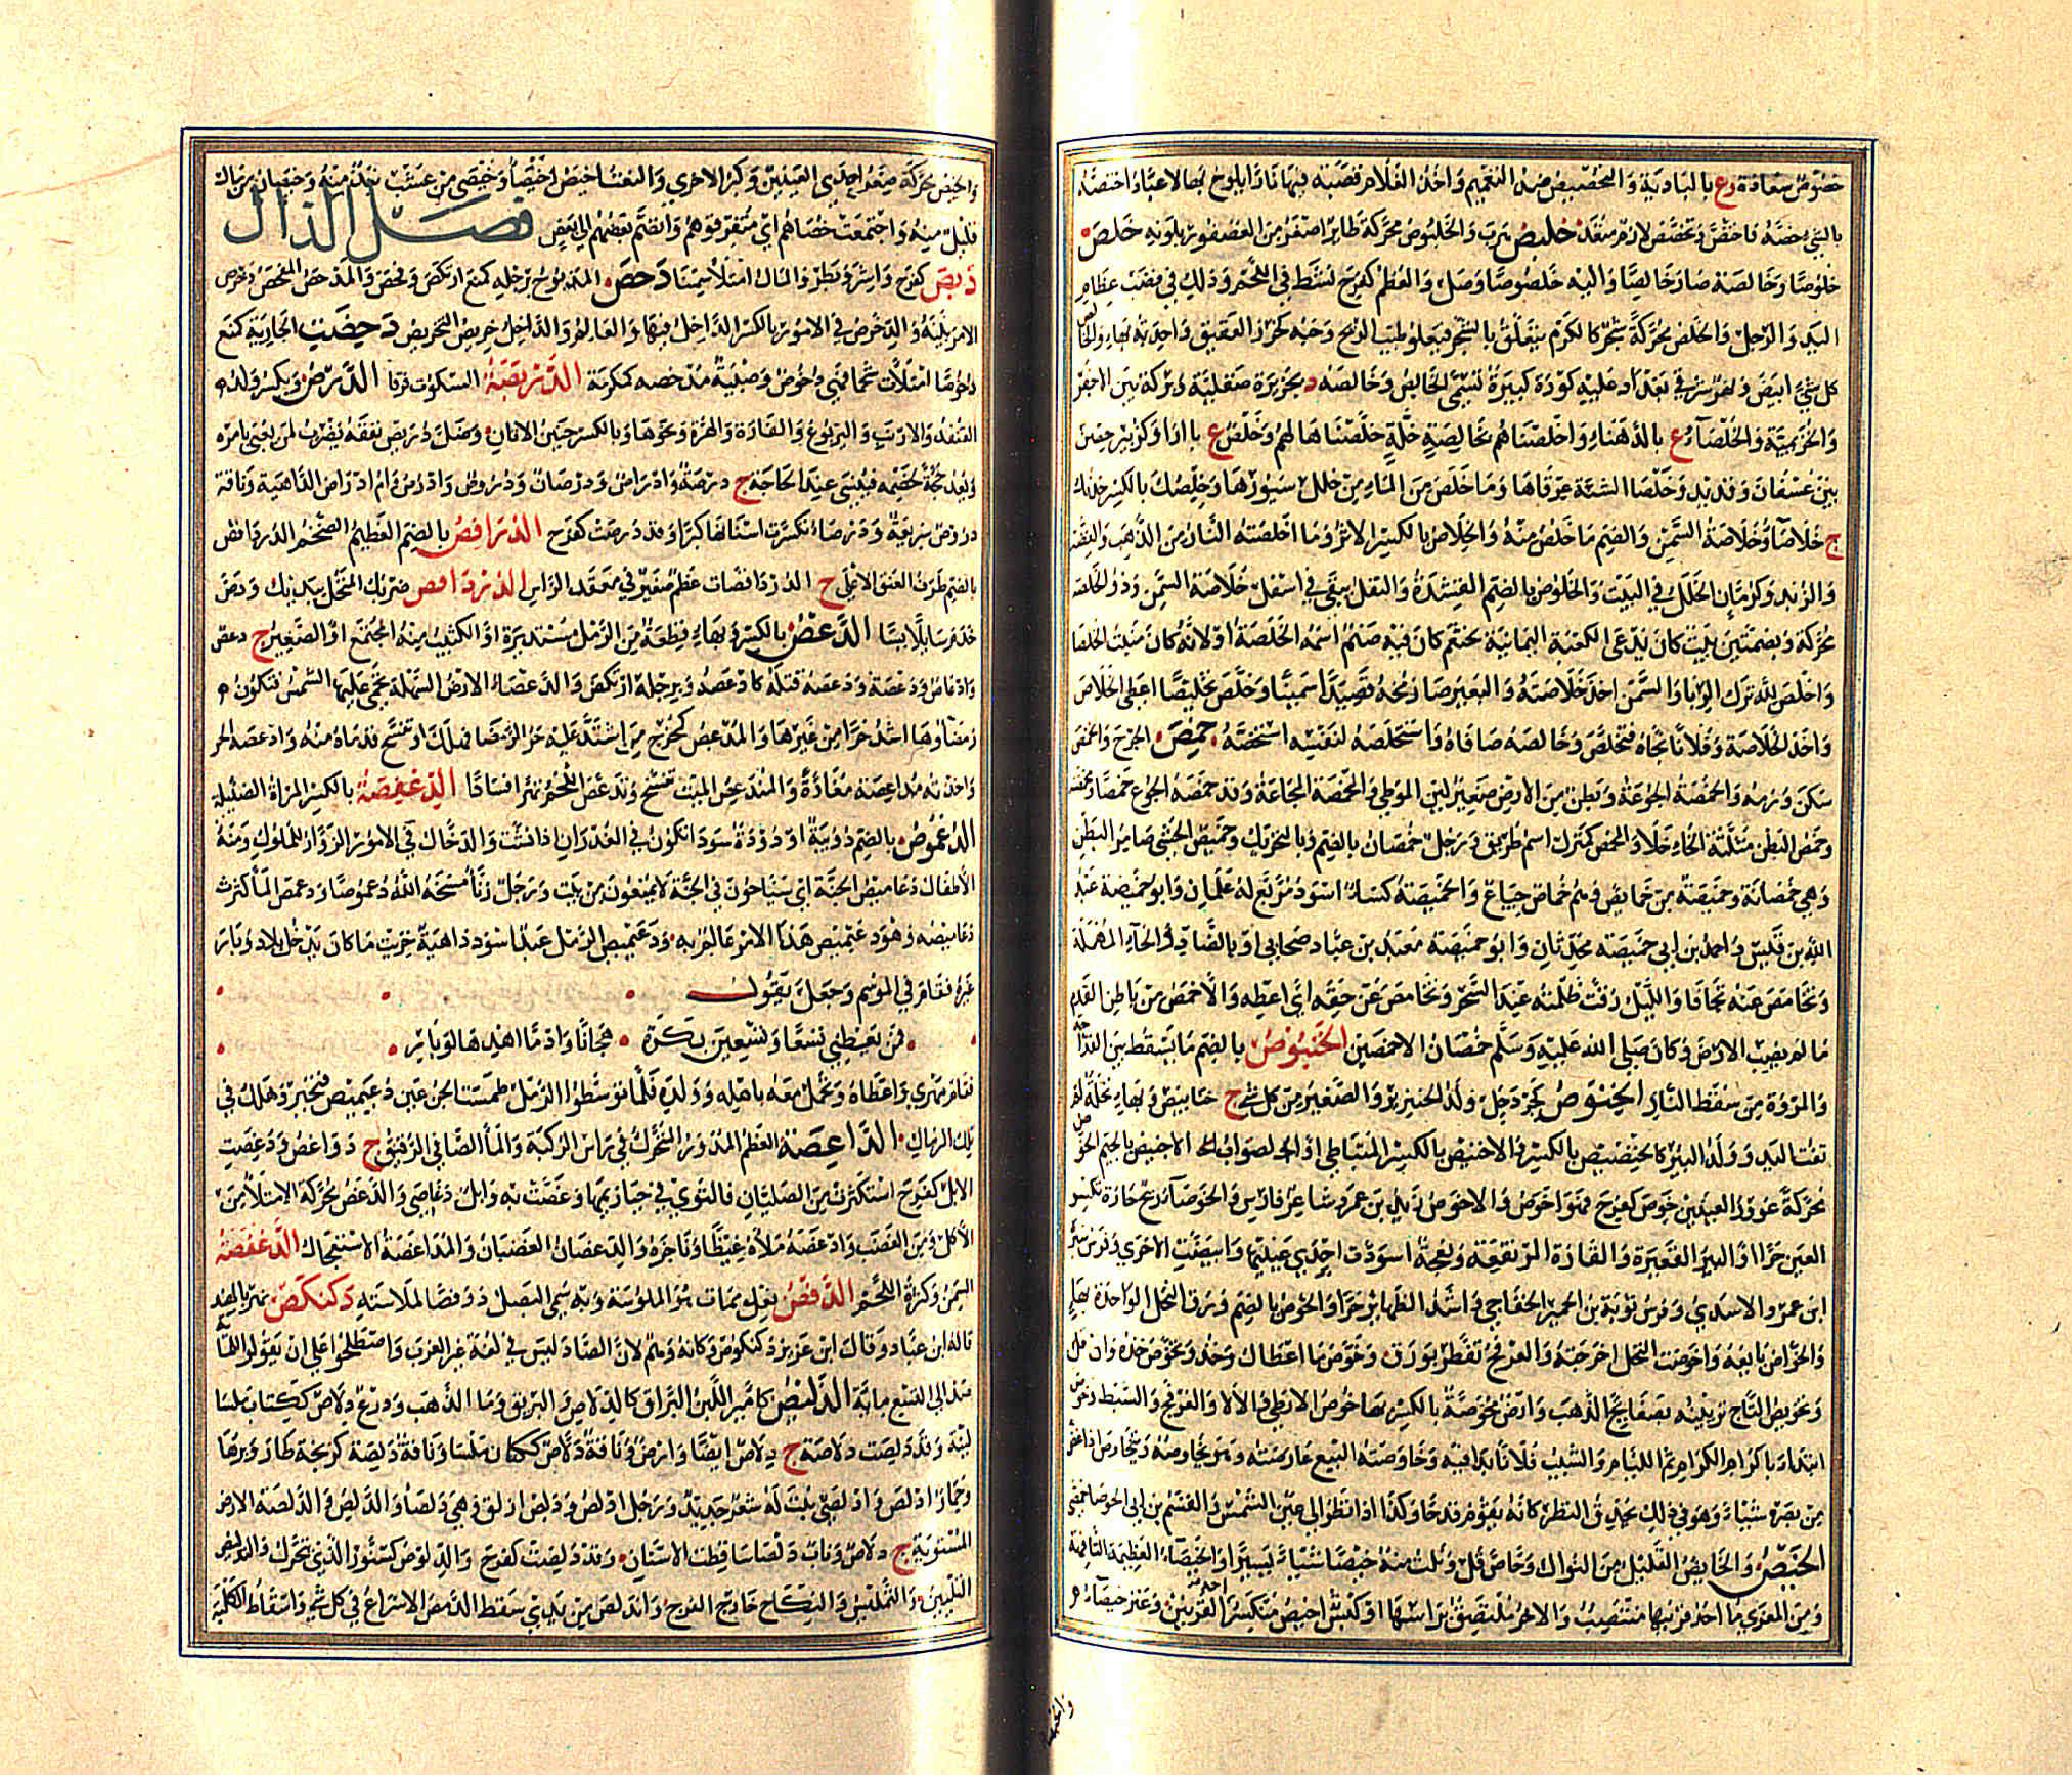 خصوص سعادة ع بالبادية والتخصيص ضد التعميم واخذ الغلام قصبة فيها نار يلوح بها لاعبا واختصه
بالشيء خصه فاختص وتخصص لازم متعد خلبص هرب والخلبوص محركة طاير اصغر من العصفور بلونه خلص
خلوصا وخالصة صار خالصا واليه خلوصا وصل والعظم كفرح نشط في اللحم وذلك في قصب عظام
اليد والرجل والخلص محركة شجر كالكرم يتعلق بالشجر فيعلو طيب الريح وحبه كخرز العقيق واحدته بهاء والخالص
كل شيء ابيض ونهر شرقي بغداد عليه كورة كبيرة تسمى الخالص وخالصة د بجزيرة صقلية وبركة بين الاجفر
والخزيمية والخلصاء ع بالدهناء واخلصناهم بخالصة خلة خلصناها لهم وخلص ع بارة او كزبير حصن
بين عسفان وقديد وخلصا الشنة عرقاها وما خلص من الماء من خلل سيورها وخلصك بالكسر خدنك
ج خلصاء وخلاصة السمن والضم ما خلص منه والخلاص بالكسر الاثر وما اخلصته النار من الذهب والفضة
والزبد وكرمان الخلل في البيت والخلوص بالضم القشدة والثفل يبقى في اسفل خلاصة السمن وذو الخلصة
محركة وبضمتين بيت كان يدعى الكعبة اليمانية لخثعم كان فيه صنم اسمه الخلصة او لانه كان منبت الخلصة
واخلص لله ترك الرياء والسمن اخذ خلاصته والبعير صار مخه قصيدا سمينا وخلص تخليصا اعطى الخلاص
واخذ الخلاصة وفلانا نجاه فتخلص وخالصه صافاه واستخلصه لنفسه استخصه خمص الجرح وانخمص
سكن ورمه والخمصة الجوعة وبطن من الارض صغير لين الموطئ والمخمصة المجاعة وقد خمصه الجوع خمصا ومخمصة
وخمص البطن مثلثة الخاء خلا والمخمص كمنزل اسم طريق ورجل خمصان بالضم وبالتحريك وخميص الحشى ضامر البطن
وهي خمصانة وخميصة من خمايص وهم خماص جياع والخميصة كساء اسود مربع له علمان وابو خميصة عبد
الله بن قيس واحمد بن ابي خميصة محدثان وابو خميصة معبد بن عباد صحابي او بالضاد والحاء المهملة
وتخامص عنه تجافى والليل رقت ظلمته عند السحر وتخامص عن حقه اي اعطه والاخمص من باطن القدم
ما لم يصب الارض وكان صلى الله عليه وسلم خمصان الاخمصين الخنبوص بالضم ما يسقط بين القداحة
والمروة من سقط النار الخنوص كجردحل ولد الخنزير والصغير من كل شيء ج خنانيص وبهاء نخلة لم
تفت اليد وولد الببر كالخنصيص بالكسر والاخنيص بالكسر المتباطئ او الصواب الاجنيص بالجيم الخوص
محركة غوور العينين خوص كفرح فهو اخوص والاخوص زيد بن عمرو شاعر فارس والخوصاء ريح حارة تكسر
العين حرا والبير القعيرة والقارة المرتفعة ونعجة اسودت احدي عينيها وابيضت الاخري وفرس سبرة
ابن عمرو الاسدي وفرس توبة بن الحمير الخفاجي واشد الظهاير حرا والخوص بالضم ورق النخل الواحدة بهاء
والخواص بايعه واخوصت النخل اخرجته والعرفج تفطر بورق وخوص ما اعطاك وخذه وتخوص خذه وان قل
وتخويص التاج تزيينه بصفايح الذهب وارض مخوصة بالكسر بها خوص الارطى والالاء والعرفج والسبط وخوص
ابتدا باكرام الكرام ثم اللئام والشيب فلانا بدا فيه وخاوصته البيع عارضته وهو يخاوص ويتخاوص اذا غض
من بصره شيئا وهو في ذلك يحدق النظر كانه يقوم قدحا وكذا اذا نظر الى عين الشمس والقسم بن ابي الخوصاء حمصي
الخيص والخايص القليل من النوال وخاص قل ونلت منه خيصا شيئا يسيرا والخيصاء العظيمة التافهة
ومن المعزى ما احد قرنيها منتصب والاخر ملتصق براسها او كبش اخيص منكسر احد القرنين وعنز خيصاء و
والخيص
والخيص محركة صغر احدى العينين وكبر الاخرى والنعت اخيص وخيصاء وخيصى من عشب نبذ منه وخيصان من مال
قليل منه واجتمعت خصاهم اي متفرقوهم وانضم بعضهم الي بعض فصل الدال
دبص كفرح واشر وبطر والمال امتلا سمنا دحص المذبوح برجله كمنع ارتكض وفحص والمدحص المفحص ودخرص
الامر بينه والدخرص في الامور بالكسر الداخل فيها والعالم والدخرص خريص التخريص دخصت الجارية كمنع
دخوصا امتلات شحما فهي دخوص وصبية مدخصة كمكرمة الدربصة السكوت فرقا الدرص ويكسر ولد
القنفذ والارنب واليربوع والفارة والهرة ونحوها وبالكسر جنين الاتان وضل دريص نفقه يضرب لمن يعنى بامره
ويعد حجة لخصمه فينسى عند الحاجة ج درصة وادراص ودرصان ودروص وادرص وام ادراص الداهية وناقة
دروص سريعة ودرصاء تكسرت اسنانها كبرا وقد درصت كفرح الدرافص بالضم العظيم الضخم الدرداقص
بالضم طرف العنق الاعلى ح الدرداقصات عظم صغير في معقد الراس الدرداقص
الدعص بالكسر وبهاء قطعة من الرمل مستديرة او الكثيب منه المجتمع او الصغير ج دعص
وادعاص ودعصة ودعصه قتله كادعصه وبرجله ارتكض والدعصاء الارض السهلة تحمى عليها الشمس فتكون
رمضاوها اشد حرا من غيرها والمدعص كمخرج من اشتد عليه حر الرمضاء فهلك او تفسخ قدماه منه وادعصه الحر
واخذته مداعصة مغارة والمندعص الميت تفسخ وتدعص اللحم تهرا فسادا الدعفصة بالكسر المراة الضئيلة
الدعموص بالضم دويبة او دودة سوداء تكون في الغدران اذا نشت والدخال في الامور الزوار للملوك ومنه
الاطفال دعاميص الجنة اي سياحون في الجنة لا يمنعون من بيت ورجل زناء مسخه الله دعموصا ودعمص الماء كثرت
دعاميصه وهو دعيميص هذا الامر عالم به ودعيميص الرمل عبد اسود داهية خريت ما كان يدخل بلاد وبار
غيره فقام في الموسم وجعل يقول
فمن يعطني تسعا وتسعين بكرة هجانا وادما اهدها لوبار
فقام مهري واعطاه وتحمل معه باهله وولده فلما توسطوا الرمل طمست الجن عين دعيميص فتحير وهلك في
تلك الرمال الداغصة العظم المدور المتحرك في راس الركبة والماء الصافي الرقيق ج دواغص ودغصت
الابل كفرح استكثرت من الصليان فالتوي في حيازيمها وغصت به وابل دغاصى والدغص محركة الامتلاء من
الاكل ومن الغضب وادغصه ملاه غيظا وناجزه والدغصان الغضبان والمداغصة الاستعجال الدغفصة
السمن وكثرة اللحم الدفص فعل ممات هو الملوسة وبه سمي البصل دوفصا لملاسته دكنكص نهر بالهند
قاله ابن عباد وقال ابن عزيز دكنكوص وكانه وهم لان الصاد ليس في لغة غير العرب واصطلحوا على ان يقولوا للماية
صد الى التسع ماية الدليص كامير اللين البراق كالدلاص والبريق وماء الذهب ودرع دلاص ككتاب ملساء
لينة وقد دلصت دلاصة ج دلاص ايضا وارض وناقة دلاص ككتان ملساء وناقة دلصة كزنخة طار وبرها
وحمار ادلص وادلصي نبت له شعر جديد ورجل ادلص ودلص ازلق وهي دلصاء والدليص والدلصة الارض
المستوية ج دلاص وناب دلصاء ساقطة الاسنان وقد دلصت كفرح والدلوص كسنور الذي يتحرك والتدليص
التليين والتمليس والنكاح خارج الفرج واندلص من يدي سقط الدمص الاسراع في كل شيء واسقاط الكلبة